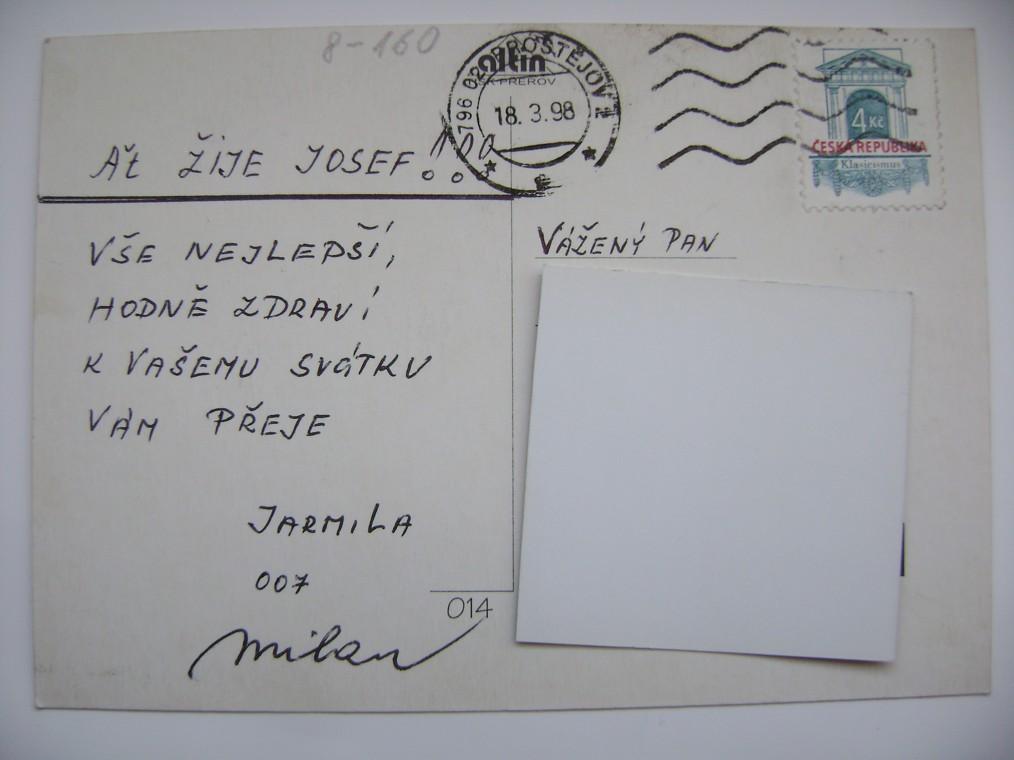 8-160
796 02 PROSTĚJOV 2
altin
PŘEROV
18.3.98
4 Kč
ČESKÁ REPUBLIKA
Klasicismus
AŤ ŽIJE JOSEF!!!
VŠE NEJLEPŠÍ,
HODNĚ ZDRAVÍ
K VAŠEMU SVÁTKU
VÁM PŘEJE
JARMILA
007
Milan
014
VÁŽENÝ PAN